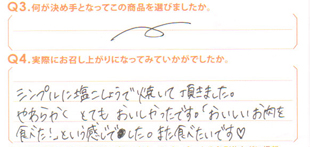 Q3.何が決め手となってこの商品を選びましたか。
Q4.実際にお召し上がりになってみていかがでしたか。
シンプルに塩こしょうで焼いて頂きました。
やわらかく とても おいしかったです。「おいしいお肉を
食べた!」という感じでした。また食べたいです♡